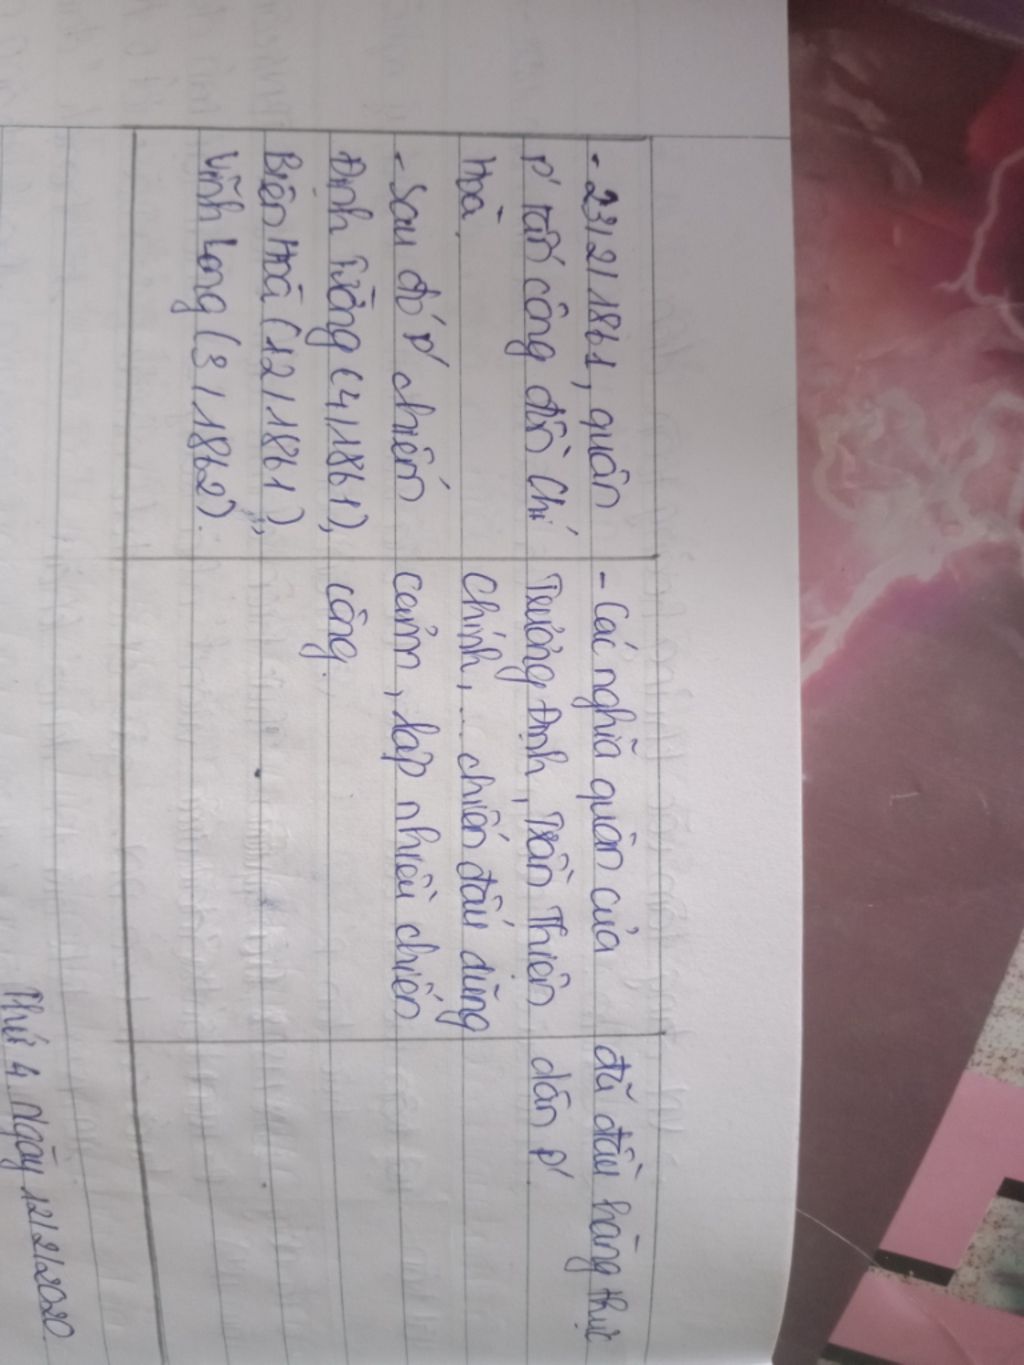 - 23/2/1861, quân
P' tấn công đồn Chí
Hoà.
- Sau đó P' chiếm
Định Tường (4/1861),
Biên Hoà (12/1861),
Vĩnh Long (3/1862).
- Các nghĩa quân của
Trương Định, Trần Thiên
Chính,... chiến đấu dũng
cảm, lập nhiều chiến
công.
đã đầu hàng thực
dân P'
Thứ 4 Ngày 12/2/2020